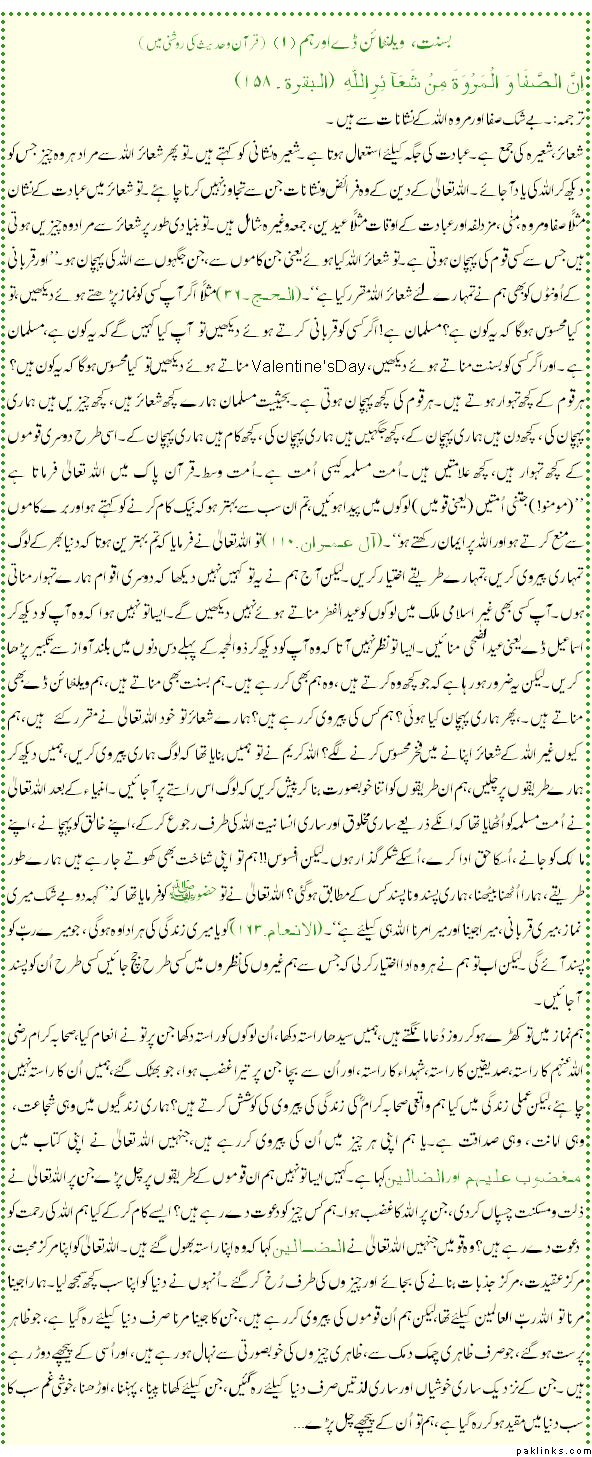 بسنت، ویلنٹائن ڈے اور ہم (۱) (قرآن و حدیث کی روشنی میں)
اِنَّ الصَّفَا وَ الْمَرْوَةَ مِنْ شَعَآئِرِ اللّٰهِ (البقرۃ۔۱۵۸)
ترجمہ:۔ بے شک صفا اور مروہ اللہ کے نشانات سے ہیں۔
شعائر، شعیرہ کی جمع ہے۔ عبادت کی جگہ کیلئے استعمال ہوتا ہے۔ شعیرہ نشانی کو کہتے ہیں۔ تو پھر شعائر اللہ سے مراد ہر وہ چیز جس کو
دیکھ کر اللہ کی یاد آجائے۔ اللہ تعالیٰ کے دین کے وہ فرائض و نشانات جن سے تجاوز نہیں کرنا چاہئے۔ تو شعائر میں عبادت کے نشان
مثلًا صفا و مروہ، منٰی، مزدلفہ اور عبادت کے اوقات مثلًا عیدین، جمعہ وغیرہ شامل ہیں۔ تو بنیادی طور پر شعائر سے مراد وہ چیزیں ہوتی
ہیں جس سے کسی قوم کی پہچان ہوتی ہے۔ تو شعائر اللہ کیا ہوئے یعنی جن کاموں سے، جن جگہوں سے اللہ کی پہچان ہو۔ ’’اور قربانی
کے اُونٹوں کو بھی ہم نے تمہارے لئے شعائر اللہ مقرر کیا ہے‘‘۔ (الحج۔۳۶) مثلًا اگر آپ کسی کو نماز پڑھتے ہوئے دیکھیں، تو
کیا محسوس ہوگا کہ یہ کون ہے؟ مسلمان ہے! اگر کسی کو قربانی کرتے ہوئے دیکھیں تو آپ کیا کہیں گے کہ یہ کون ہے، مسلمان
ہے۔ اور اگر کسی کو بسنت مناتے ہوئے دیکھیں، Valentine'sDay مناتے ہوئے دیکھیں تو کیا محسوس ہوگا کہ یہ کون ہیں؟
ہر قوم کے کچھ تہوار ہوتے ہیں۔ ہر قوم کی کچھ پہچان ہوتی ہے۔ بحیثیت مسلمان ہمارے کچھ شعائر ہیں، کچھ چیزیں ہیں ہماری
پہچان کی، کچھ دن ہیں ہماری پہچان کے، کچھ جگہیں ہیں ہماری پہچان کی، کچھ کام ہیں ہماری پہچان کے۔ اسی طرح دوسری قوموں
کے کچھ تہوار ہیں، کچھ علامتیں ہیں۔ اُمت مسلمہ کیسی اُمت ہے۔ اُمت وسط۔ قرآن پاک میں اللہ تعالیٰ فرماتا ہے
’’(مومنو!) جتنی اُمتیں (یعنی قومیں) لوگوں میں پیدا ہوئیں، تم ان سب سے بہتر ہو کہ نیک کام کرنے کو کہتے ہو اور برے کاموں
سے منع کرتے ہو اور اللہ پر ایمان رکھتے ہو‘‘۔ (آل عمران۔۱۱۰) تو اللہ تعالیٰ نے فرمایا کہ تم بہترین ہو تاکہ دنیا بھر کے لوگ
تمہاری پیروی کریں، تمہارے طریقے اختیار کریں۔ لیکن آج ہم نے یہ تو کہیں نہیں دیکھا کہ دوسری اقوام ہمارے تہوار مناتی
ہوں۔ آپ کسی بھی غیر اسلامی ملک میں لوگوں کو عیدالفطر مناتے ہوئے نہیں دیکھیں گے۔ ایسا تو نہیں ہوا کہ وہ آپ کو دیکھ کر
اسماعیل ڈے یعنی عیدالضحٰی منائیں۔ ایسا تو نظر نہیں آتا کہ وہ آپ کو دیکھ کر ذوالحجہ کے پہلے دس دنوں میں بلند آواز سے تکبیر پڑھا
کریں۔ لیکن یہ ضرور ہو رہا ہے کہ جو کچھ وہ کرتے ہیں، وہ ہم بھی کر رہے ہیں۔ ہم بسنت بھی مناتے ہیں، ہم ویلنٹائن ڈے بھی
مناتے ہیں۔، پھر ہماری پہچان کیا ہوئی؟ ہم کس کی پیروی کر رہے ہیں؟ ہمارے شعائر تو خود اللہ تعالیٰ نے مقرر کئے ہیں، ہم
کیوں غیر اللہ کے شعائر اپنانے میں فخر محسوس کرنے لگے؟ اللہ کریم نے تو ہمیں بنایا تھا کہ لوگ ہماری پیروی کریں، ہمیں دیکھ کر
ہمارے طریقوں پر چلیں، ہم ان طریقوں کو اتنا خوبصورت بنا کر پیش کریں کہ لوگ اس راستے پر آجائیں۔ انبیاء کے بعد اللہ تعالیٰ
نے اُمت مسلمہ کو اُٹھایا تھا کہ انکے ذریعے ساری مخلوق اور ساری انسانیت اللہ کی طرف رجوع کرکے، اپنے خالق کو پہچانے، اپنے
مالک کو جانے، اُسکا حق ادا کرے، اُسکے شکر گذار ہوں۔ لیکن افسوس!! ہم تو اپنی شناخت بھی کھوتے جارہے ہیں ہمارے طور
طریقے، ہمارا اُٹھنا بیٹھنا، ہماری پسند و ناپسند کس کے مطابق ہوگئی؟ اللہ تعالیٰ نے تو حضور ﷺ کو فرمایا تھا کہ ’’کہہ دو بے شک میری
نماز، میری قربانی، میرا جینا اور میرا مرنا اللہ ہی کیلئے ہے‘‘۔ (الانعام۔۱۶۳) گویا میری زندگی کی ہر ادا وہ ہوگی، جو میرے ربّ کو
پسند آئے گی۔ لیکن اب تو ہم نے ہر وہ ادا اختیار کرلی کہ جس سے ہم غیروں کی نظروں میں کسی طرح جچ جائیں کسی طرح اُن کو پسند
آجائیں۔
ہم نماز میں تو کھڑے ہو کر روز دُعا مانگتے ہیں، ہمیں سیدھا راستہ دکھا، اُن لوگوں کو راستہ دکھا جن پر تو نے انعام کیا، صحابہ کرام رضی
اللہ عنہم کا راستہ، صدیقین کا راستہ، شہداء کا راستہ، اور اُن سے بچا جن پر تیرا غضب ہوا، جو بھٹک گئے، ہمیں اُن کا راستہ نہیں
چاہئے، لیکن عملی زندگی میں کیا ہم واقعی صحابہ کرامؓ کی زندگی کی پیروی کی کوشش کرتے ہیں؟ ہماری زندگیوں میں وہی شجاعت،
وہی امانت، وہی صداقت ہے۔ یا ہم اپنی ہر چیز میں اُن کی پیروی کر رہے ہیں، جنہیں اللہ تعالیٰ نے اپنی کتاب میں
مغضوب علیہم اور الضالین کہا ہے۔ کہیں ایسا تو نہیں ہم ان قوموں کے طریقوں پر چل پڑے جن پر اللہ تعالیٰ نے
ذلت و مسکنت چسپاں کردی، جن پر اللہ کا غضب ہوا۔ ہم کس چیز کو دعوت دے رہے ہیں؟ ایسے کام کرکے کیا ہم اللہ کی رحمت کو
دعوت دے رہے ہیں؟ وہ قومیں جنہیں اللہ تعالیٰ نے الضالین کہا کہ وہ اپنا راستہ بھول گئے ہیں۔ اللہ تعالیٰ کو اپنا مرکز محبت،
مرکز عقیدت، مرکز جذبات بنانے کی بجائے اور چیزوں کی طرف رُخ کر گئے۔ اُنہوں نے دنیا کو اپنا سب کچھ سمجھ لیا۔ ہمارا جینا
مرنا تو اللہ ربّ العالمین کیلئے تھا، لیکن ہم اُن قوموں کی پیروی کر رہے ہیں، جن کا جینا مرنا صرف دنیا کیلئے رہ گیا ہے، جو ظاہر
پرست ہوگئے، جو صرف ظاہری چمک دمک سے، ظاہری چیزوں کی خوبصورتی سے نہال ہو رہے ہیں، اور اُسی کے پیچھے دوڑ رہے
ہیں۔ جن کے نزدیک ساری خوشیاں اور ساری لذتیں صرف دنیا کیلئے رہ گئیں، جن کیلئے کھانا پینا، پہننا، اوڑھنا، خوشی غم سب کا
سب دنیا میں مقید ہو کر رہ گیا ہے، ہم تو اُن کے پیچھے چل پڑے...
paklinks.com